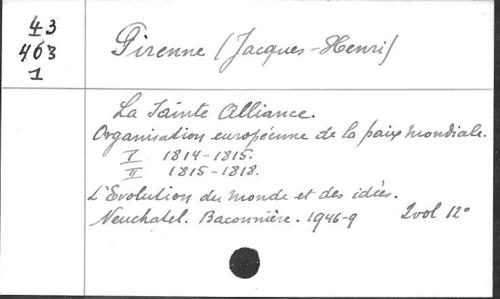 43
463
1
Pirenne (Jacques-Henri)
La Sainte Alliance.
Organisation européenne de la paix mondiale.
I 1814-1815.
II 1815-1818.
L'Evolution du Monde et des idées.
Neuchatel. Baconnière. 1946-9 2vol 12°